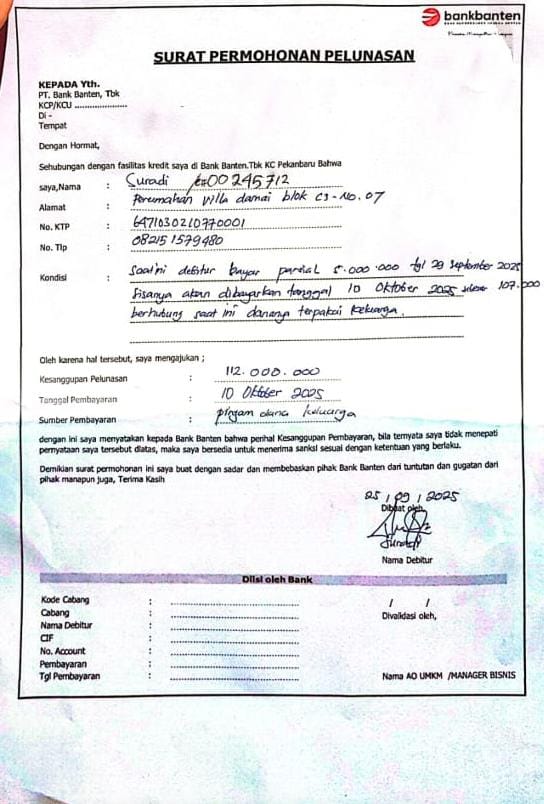 bankbanten
SURAT PERMOHONAN PELUNASAN
KEPADA Yth.
PT. Bank Banten, Tbk
KCP/KCU ......................
Di -
Tempat
Dengan Hormat,
Sehubungan dengan fasilitas kredit saya di Bank Banten.Tbk KC Pekanbaru Bahwa
saya,Nama : Suradi 00245712
Alamat : Perumahan villa damai blok C3-No.07
No. KTP : 6471030210770001
No. Tlp : 082151579480
Kondisi : Saat ini debitur bayar parsial 5.000.000 tgl 29 September 2025
Sisanya akan dibayarkan tanggal 10 Oktober 2025 107.000
berhubung saat ini dananya terpakai keluarga.
Oleh karena hal tersebut, saya mengajukan ;
Kesanggupan Pelunasan : 112.000.000
Tanggal Pembayaran : 10 Oktober 2025
Sumber Pembayaran : pinjam dana keluarga
dengan ini saya menyatakan kepada Bank Banten bahwa perihal Kesanggupan Pembayaran, bila ternyata saya tidak menepati
pernyataan saya tersebut diatas, maka saya bersedia untuk menerima sanksi sesuai dengan ketentuan yang berlaku.
Demikian surat permohonan ini saya buat dengan sadar dan membebaskan pihak Bank Banten dari tuntutan dan gugatan dari
pihak manapun juga, Terima Kasih
25/09/2025
Dibuat oleh,
Suradi
Nama Debitur
Diisi oleh Bank
Kode Cabang : / /
Cabang : Divalidasi oleh,
Nama Debitur :
CIF :
No. Account :
Pembayaran :
Tgl Pembayaran : Nama AO UMKM /MANAGER BISNIS